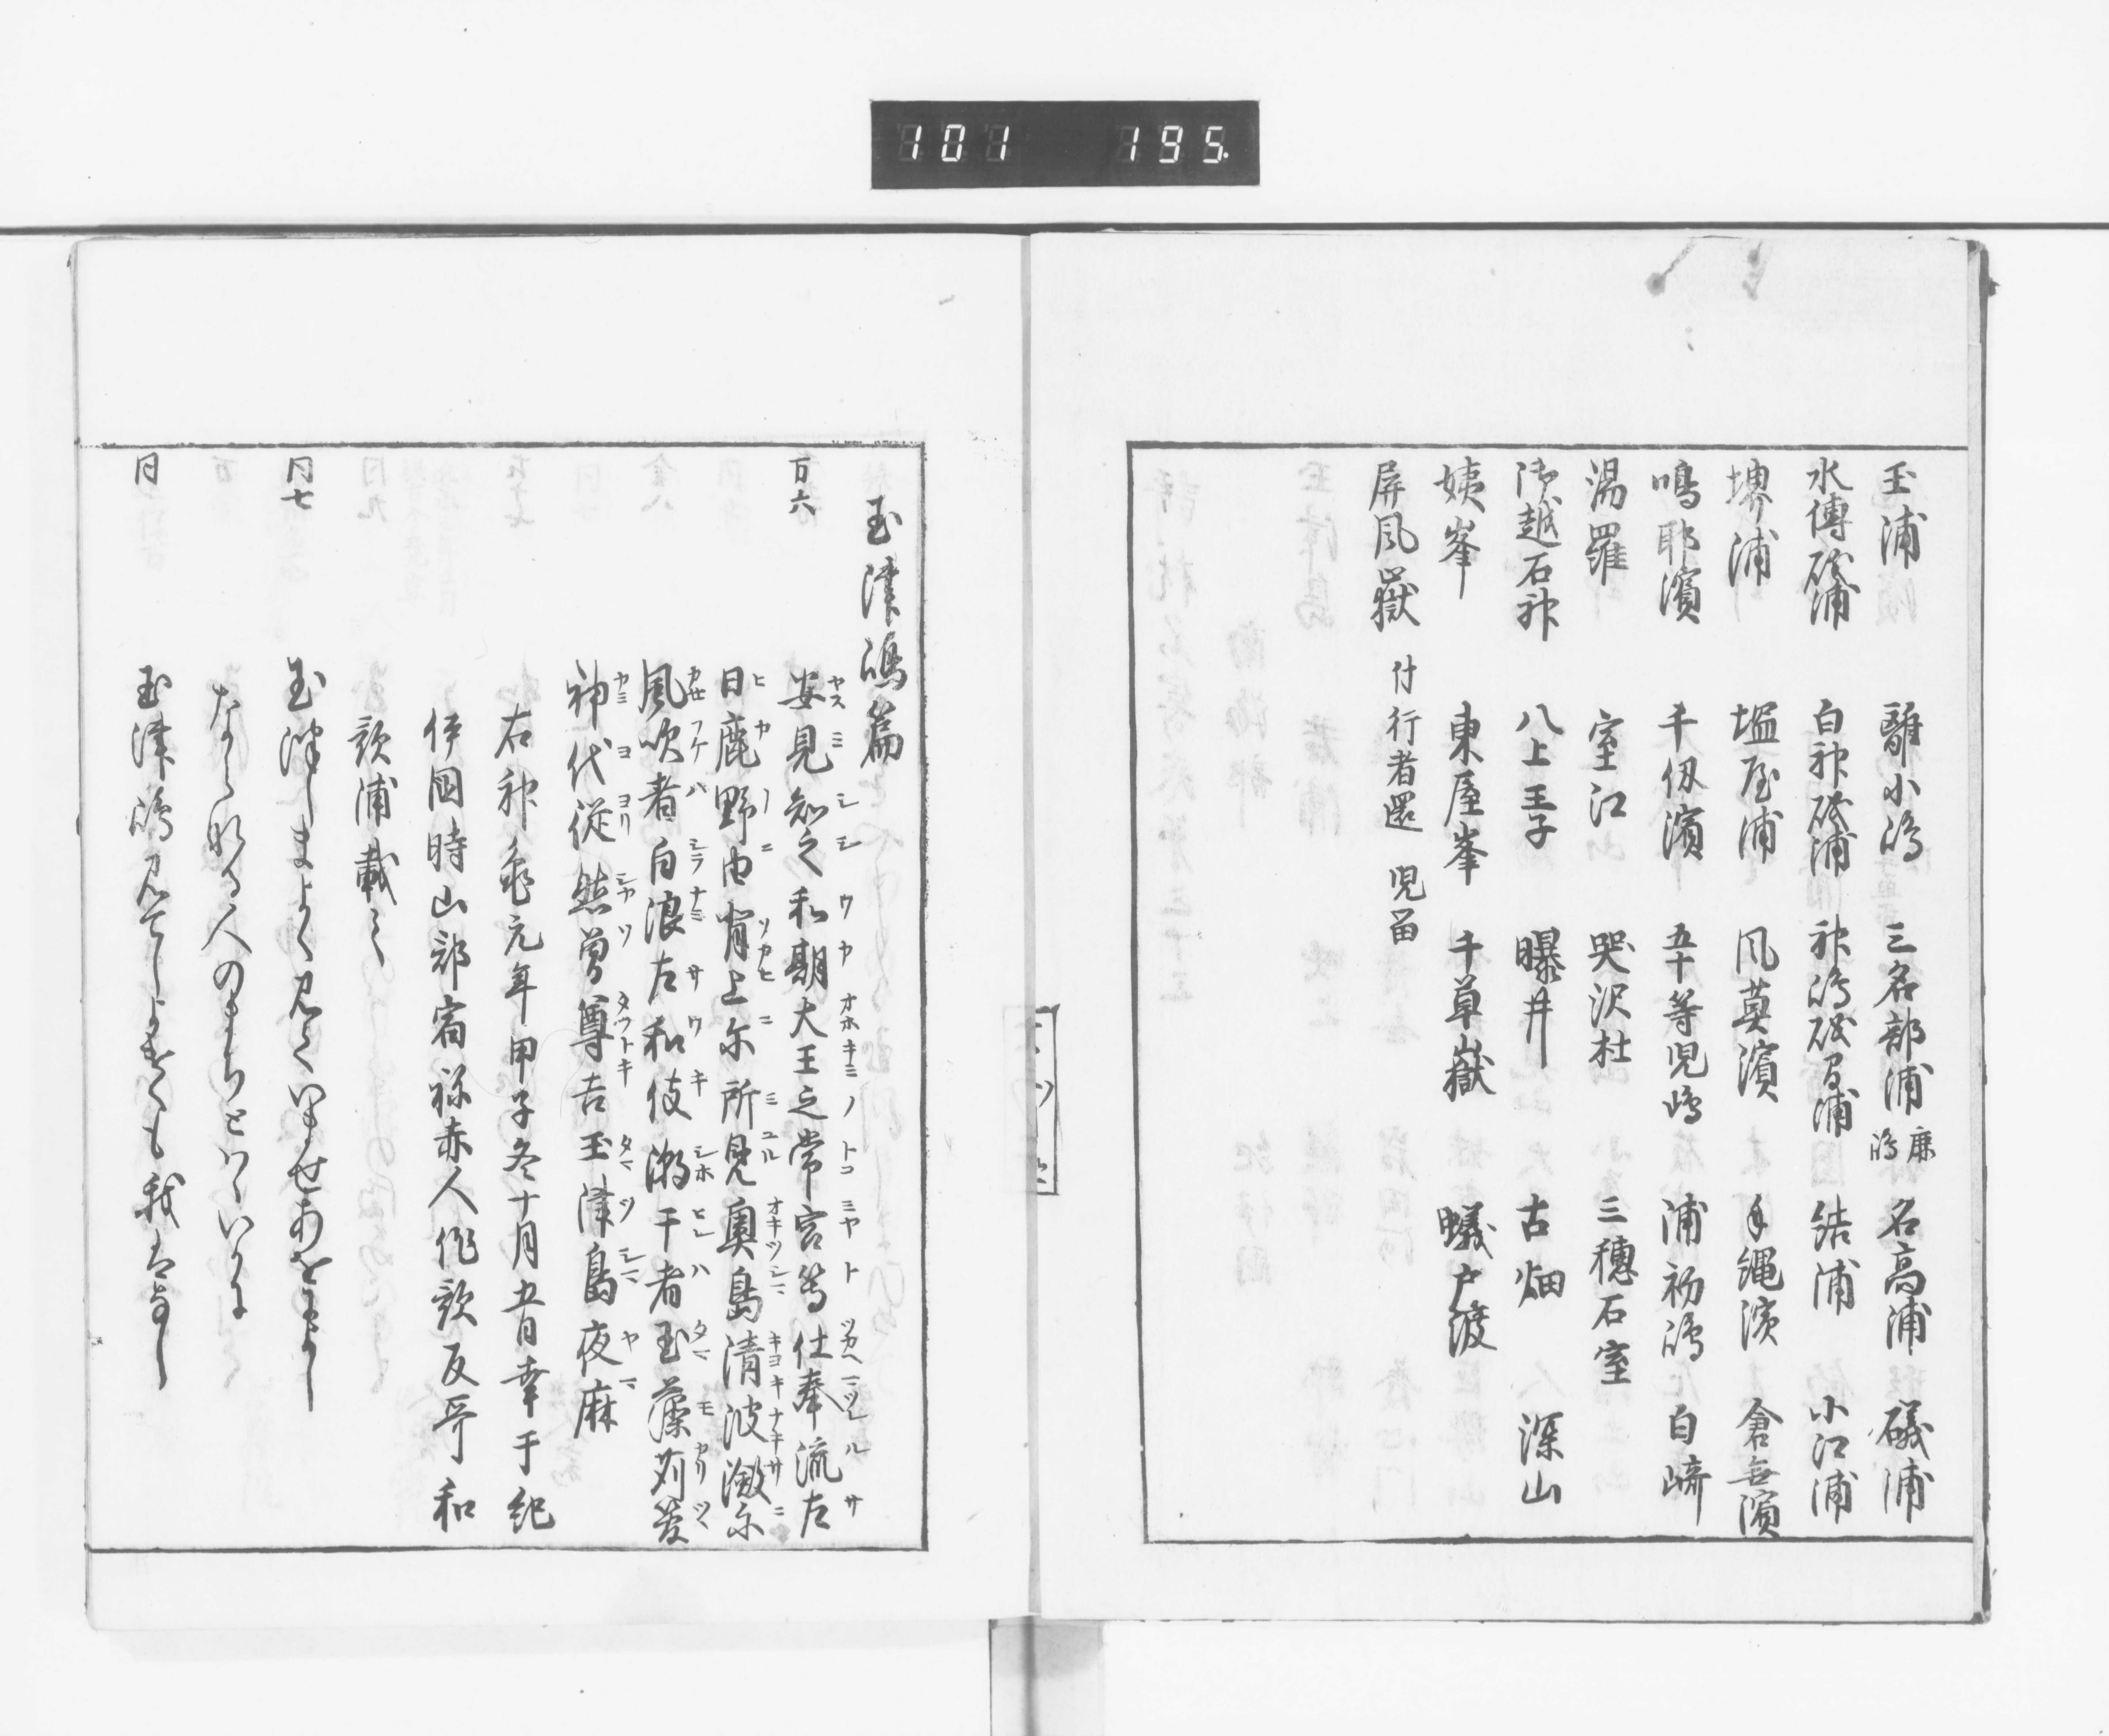 101 195.
玉浦 離小嶋 三名部浦 鹿嶋 名高浦 礒浦
水傳礒浦 白神礒浦 神嶋礒房浦 結浦 小江浦
堺浦 塩屋浦 風莫濱 手縄濱 倉無濱
鳴耶濱 千仭濱 五十等児嶋 浦初嶋 白﨑
湯羅 室江 哭沢杜 三穂石室
御越石神 八上王子 曝井 古畑 深山
姨峯 東屋峯 千草嶽 蟻戸渡
屏風嶽 付行者還 児留
玉津嶋篇
万六 安見知之和期大王之常宮等仕奉流左
日鹿野由背上尓所見奥島清波瀲尓
風吹者白浪左和伎潮干者玉藻苅管
神代従然曽尊吉玉津島夜麻
右神亀元年甲子冬十月五日幸于紀
伊国時山部宿祢赤人作歌反哥和
歌浦載之
同七 玉津しまよく見ていませあをによし
ならなる人のまちとはゝいかに
同 玉津嶋見てしよけくも我はなし